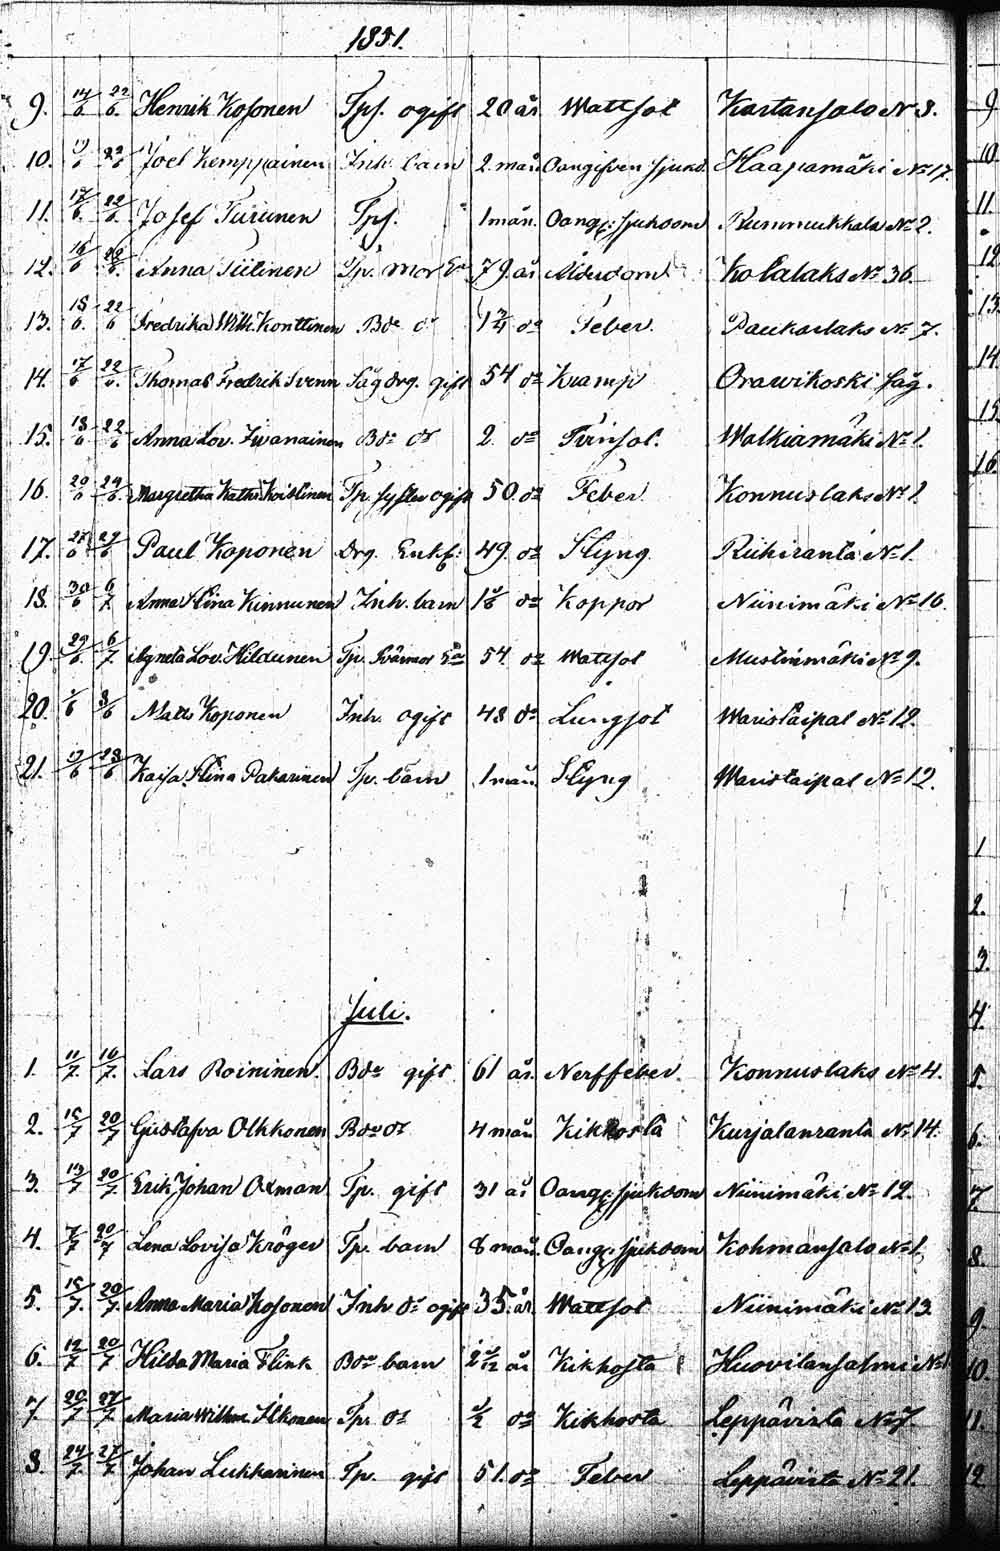 1851.
9. 14/6 22/6. Henrik Kosonen Tps. ogift 20 år Wattsot Kartansalo No 3.
10. 22/6 Joel Kemppainen Inh. barn 2 mån. Oangifven sjukd. Haapamäki No 17.
11. 17/6. 22/6. Josef Turunen Tps. 1 mån. Oang: sjukdom Rummukkala No 2.
12. 16/6 Anna Tiilinen Tp. mor Ea 79. år Ålderdom Kotalaks No 36.
13. 15/6. 22/6 Fredrika Wilh. Konttinen Bdr dr 1 3/4 do Feber. Paukarlaks No 7.
14. 17/6 22/6. Thomas Fredrik Svenn Sågdrg. gift 54 do Kramp Orawikoski såg.
15. 18/6 22/6 Anna Lov. Iivanainen Bdr dr 2 do Tvinsot. Walkiamäki No 1.
16. 20/6 29/6. Margretha Kathr. Koistinen Tp. syster ogift 50. do Feber Konnuslaks No 1.
17. 27/6 29/6 Paul Koponen Drg. Enkl: 49. do Styng. Riihiranta No 1.
18. 30/6 6/7. Anna Stina Kinnunen Inh. barn do Koppor Niinimäki No 16.
19 29/6. 6/7. Agneta Lov. Hildunen Tp. Svärmor Ea 54 do Wattsot Mustinmäki No 9.
20. /6 8/6 Matts Koponen Inh. ogift 48 do Lungsot Waristaipal No 12.
21. /6 28/6 Kaisa Stina Pakarinen Tp. barn 1 mån. Styng Waristaipal No 12.
Juli.
1. 11/7. 16/7. Lars Roininen. Bdr gift 61 år. Nerffeber. Konnuslaks No 4.
2. 15/7 20/7 Gustafva Olkkonen Bdr dr 4 mån Kikhosta Kurjalanranta No 14.
3. 13/7 20/7. Erik Johan Oxman Tp. gift 31 år Oang: sjukdom Niinimäki No 12.
4. 7/7 20/7 Lena Lovisa Kröger Tp. barn 8 mån. Oang: sjukdom Kohmansalo No 1.
5. 15/7. 20/7. Anna Maria Kosonen Inh. dr ogift 35. år. Wattsot Niinimäki No 13.
6. 12/7 20/7 Hilda Maria Flink Bdr barn år Kikhosta Huovilansalmi No
7. 20/7 27/7 Maria Wilhm. Ikonen Tpr dr 1/2 do Kikhosta Leppävirta No 7
8. 24/7. 27/7 Johan Lukkarinen Tp. gift 51. do Feber Leppävirta No 21.
9.
10.
11.
12
13.
14.
15
16
1
2.
3.
4.
5.
6.
7.
8.
9.
10.
11.
12